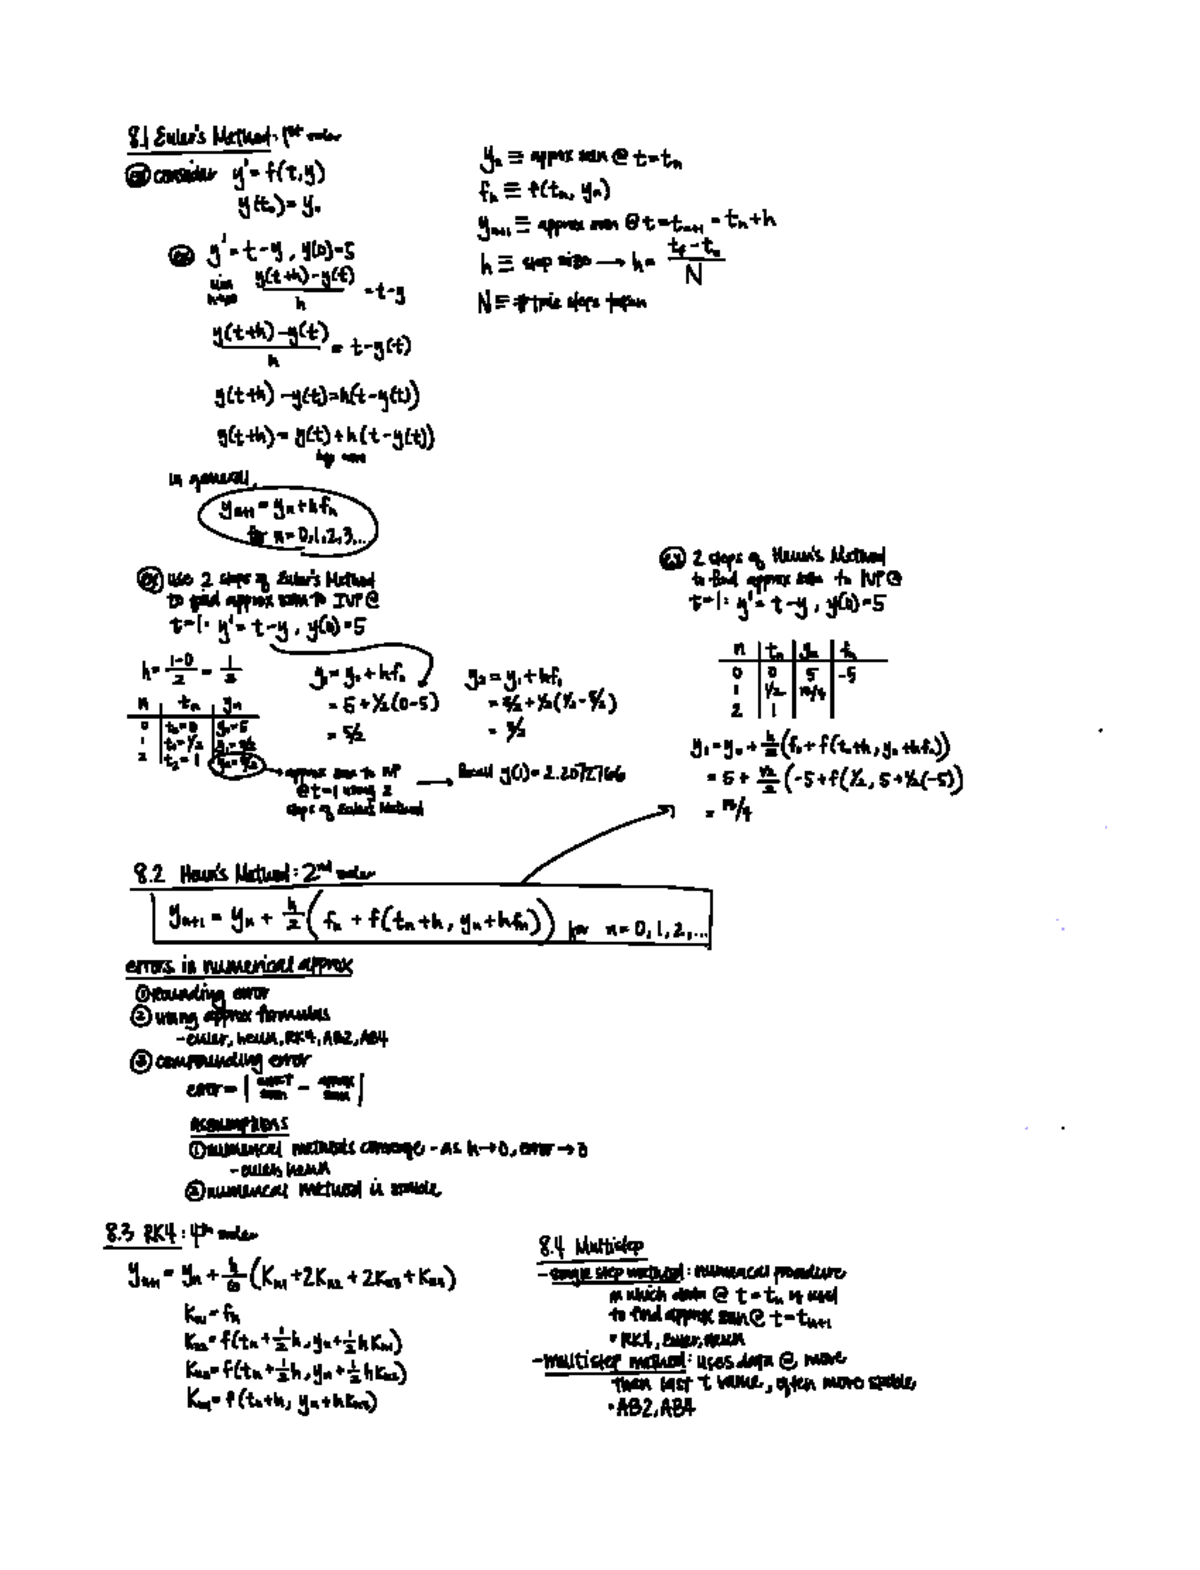 8.1 Euler's Method: 1st order
ex consider y' = f(t,y)
y(t₀) = y₀
yₙ ≡ approx soln @ t=tₙ
fₙ ≡ f(tₙ, yₙ)
yₙ₊₁ ≡ approx soln @ t=tₙ₊₁ = tₙ+h
h ≡ step size → h = (t_f - t₀)/N
N ≡ # time steps taken
ex y' = t-y, y(0)=5
lim h→0 (y(t+h)-y(t))/h = t-y
(y(t+h)-y(t))/h = t-y(t)
y(t+h)-y(t)=h(t-y(t))
y(t+h)= y(t)+h(t-y(t))
in general,
yₙ₊₁ = yₙ+hfₙ
for n=0,1,2,3,...
ex use 2 steps of Euler's Method
to find approx soln to IVP @
t=1: y' = t-y, y(0)=5
h= (1-0)/2 = 1/2
n tₙ yₙ
0 t₀=0 y₀=5
1 t₁=1/2 y₁=5/2
2 t₂=1
y₁=y₀+hf₀
= 5+1/2(0-5)
= 5/2
y₂=y₁+hf₁
= 5/2+1/2(1/2-5/2)
= 3/2
→ approx soln to IVP
@ t=1 using 2
steps of Euler's Method
→ Recall y(1)= 2.2072766
ex 2 steps of Heun's Method
to find approx soln to IVP @
t=1: y' = t-y, y(0)=5
n tₙ yₙ fₙ
0 0 5 -5
1 1/2 13/4
2 1
y₁=y₀+h/2(f₀+f(t₀+h, y₀+hf₀))
= 5+ (1/2)/2(-5+f(1/2, 5+1/2(-5))
= 13/4
8.2 Heun's Method: 2nd order
yₙ₊₁ = yₙ + h/2(fₙ + f(tₙ+h, yₙ+hfₙ)) for n=0,1,2,...
errors in numerical approx
① rounding error
② using approx formulas
-euler, heun, RK4, AB2, AB4
③ compounding error
error = | exact soln - approx soln |
assumptions
① numerical methods converge - as h→0, error→0
- euler, heun
② numerical method is stable
8.3 RK4: 4th order
yₙ₊₁ = yₙ + h/6(Kₙ₁+2Kₙ₂+2Kₙ₃+Kₙ₄)
Kₙ₁=fₙ
Kₙ₂=f(tₙ+½h, yₙ+½hKₙ₁)
Kₙ₃=f(tₙ+½h, yₙ+½hKₙ₂)
Kₙ₄=f(tₙ+h, yₙ+hKₙ₃)
8.4 Multistep
-single step method: numerical procedure
in which data @ t=tₙ is used
to find approx soln @ t=tₙ₊₁
• RK4, Euler, Heun
-multistep method: uses data @ more
than last t value, often more stable
• AB2, AB4